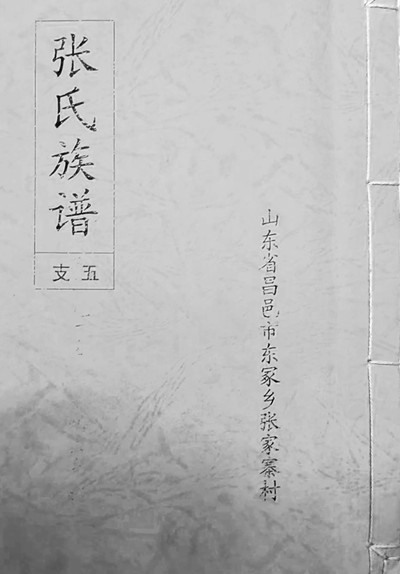 张氏族谱
五支
山东省昌邑市东冢乡张家寨村